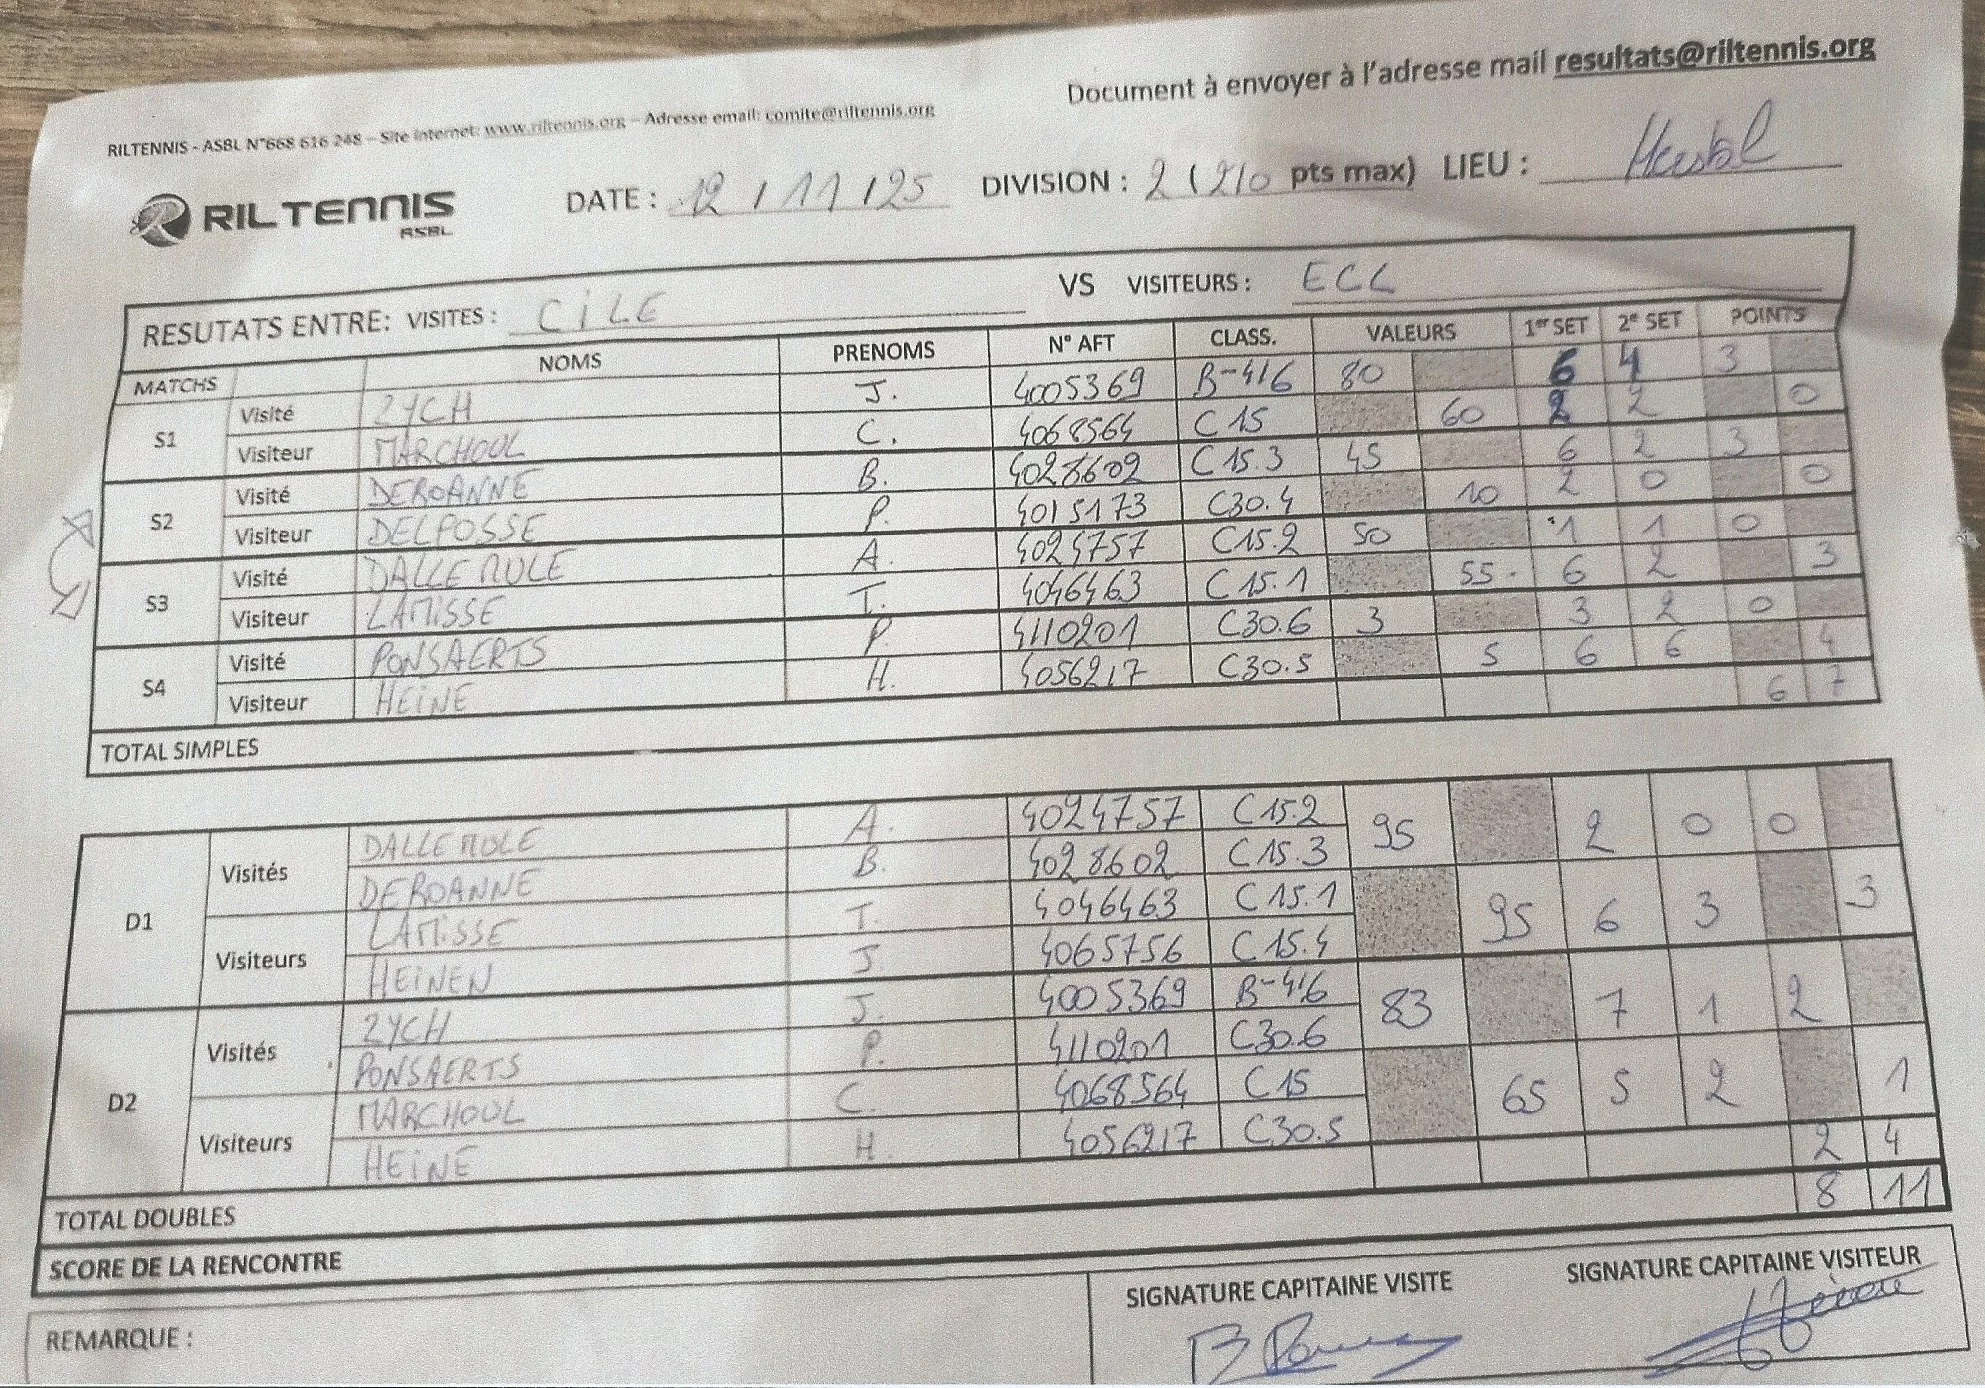 Document à envoyer à l'adresse mail resultats@riltennis.org
RILTENNIS - ASBL N°668 616 248 – Site internet: www.riltennis.org – Adresse email: comite@riltennis.org
RILTENNIS ASBL DATE : 12 / 11 / 25 DIVISION : 2 ( 210 pts max) LIEU :
RESUTATS ENTRE: VISITES : CILE VS VISITEURS : ECL
MATCHS NOMS PRENOMS N° AFT CLASS. VALEURS 1er SET 2e SET POINTS
S1 Visité ZYCH J. 4005369 B-4/6 80 6 4 3
Visiteur MARCHOUL C. 4068564 C15 60 2 2 0
S2 Visité DEROANNE B. 4028602 C15.3 45 6 2 3
Visiteur DELFOSSE P. 4015173 C30.4 10 2 0 0
S3 Visité DALLEMOLE A. 4024757 C15.2 50 1 1 0
Visiteur LAMISSE T. 4046463 C15.1 55 6 2 3
S4 Visité PONSAERTS P. 4110201 C30.6 3 3 2 0
Visiteur HEINE H. 4056217 C30.5 5 6 6 4
TOTAL SIMPLES 6 7
D1 Visités DALLEMOLE A. 4024757 C15.2 95 2 0 0
DEROANNE B. 4028602 C15.3
Visiteurs LAMISSE T. 4046463 C15.1 95 6 3 3
HEINEN J. 4065756 C15.4
D2 Visités ZYCH J. 4005369 B-4/6 83 7 1 2
PONSAERTS P. 4110201 C30.6
Visiteurs MARCHOUL C. 4068564 C15 65 5 2 1
HEINE H. 4056217 C30.5
TOTAL DOUBLES 2 4
SCORE DE LA RENCONTRE 8 11
REMARQUE : SIGNATURE CAPITAINE VISITE SIGNATURE CAPITAINE VISITEUR